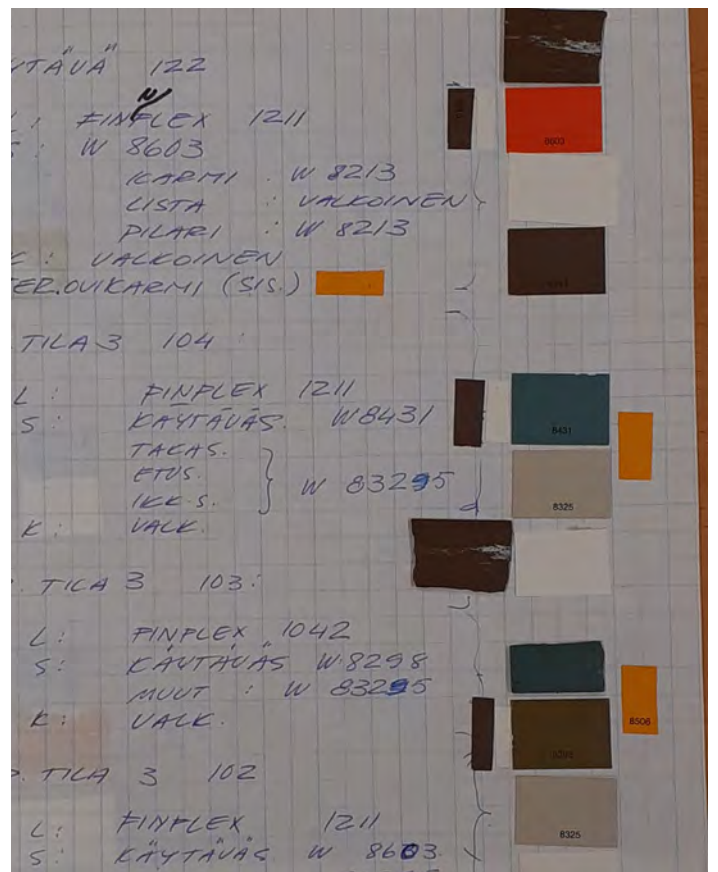 YTÄVÄ 122
L: FINFLEX 1211
S: W 8603
8603
KARMI : W 8213
LISTA : VALKOINEN
PILARI : W 8213
K: VALKOINEN
TER.OVIKARMI (SIS.)
TILA 3 104:
L: FINFLEX 1211
S: KÄYTÄVÄS. W8431
8431
TAKAS.
ETUS.
IKK.S. } W 8325
8325
K: VALK.
. TILA 3 103:
L: FINFLEX 1042
S: KÄYTÄVÄS W.8298
MUUT : W 8325
K: VALK.
8506
. TILA 3 102
L: FINFLEX 1211
8325
S: KÄYTÄVÄS W 8603